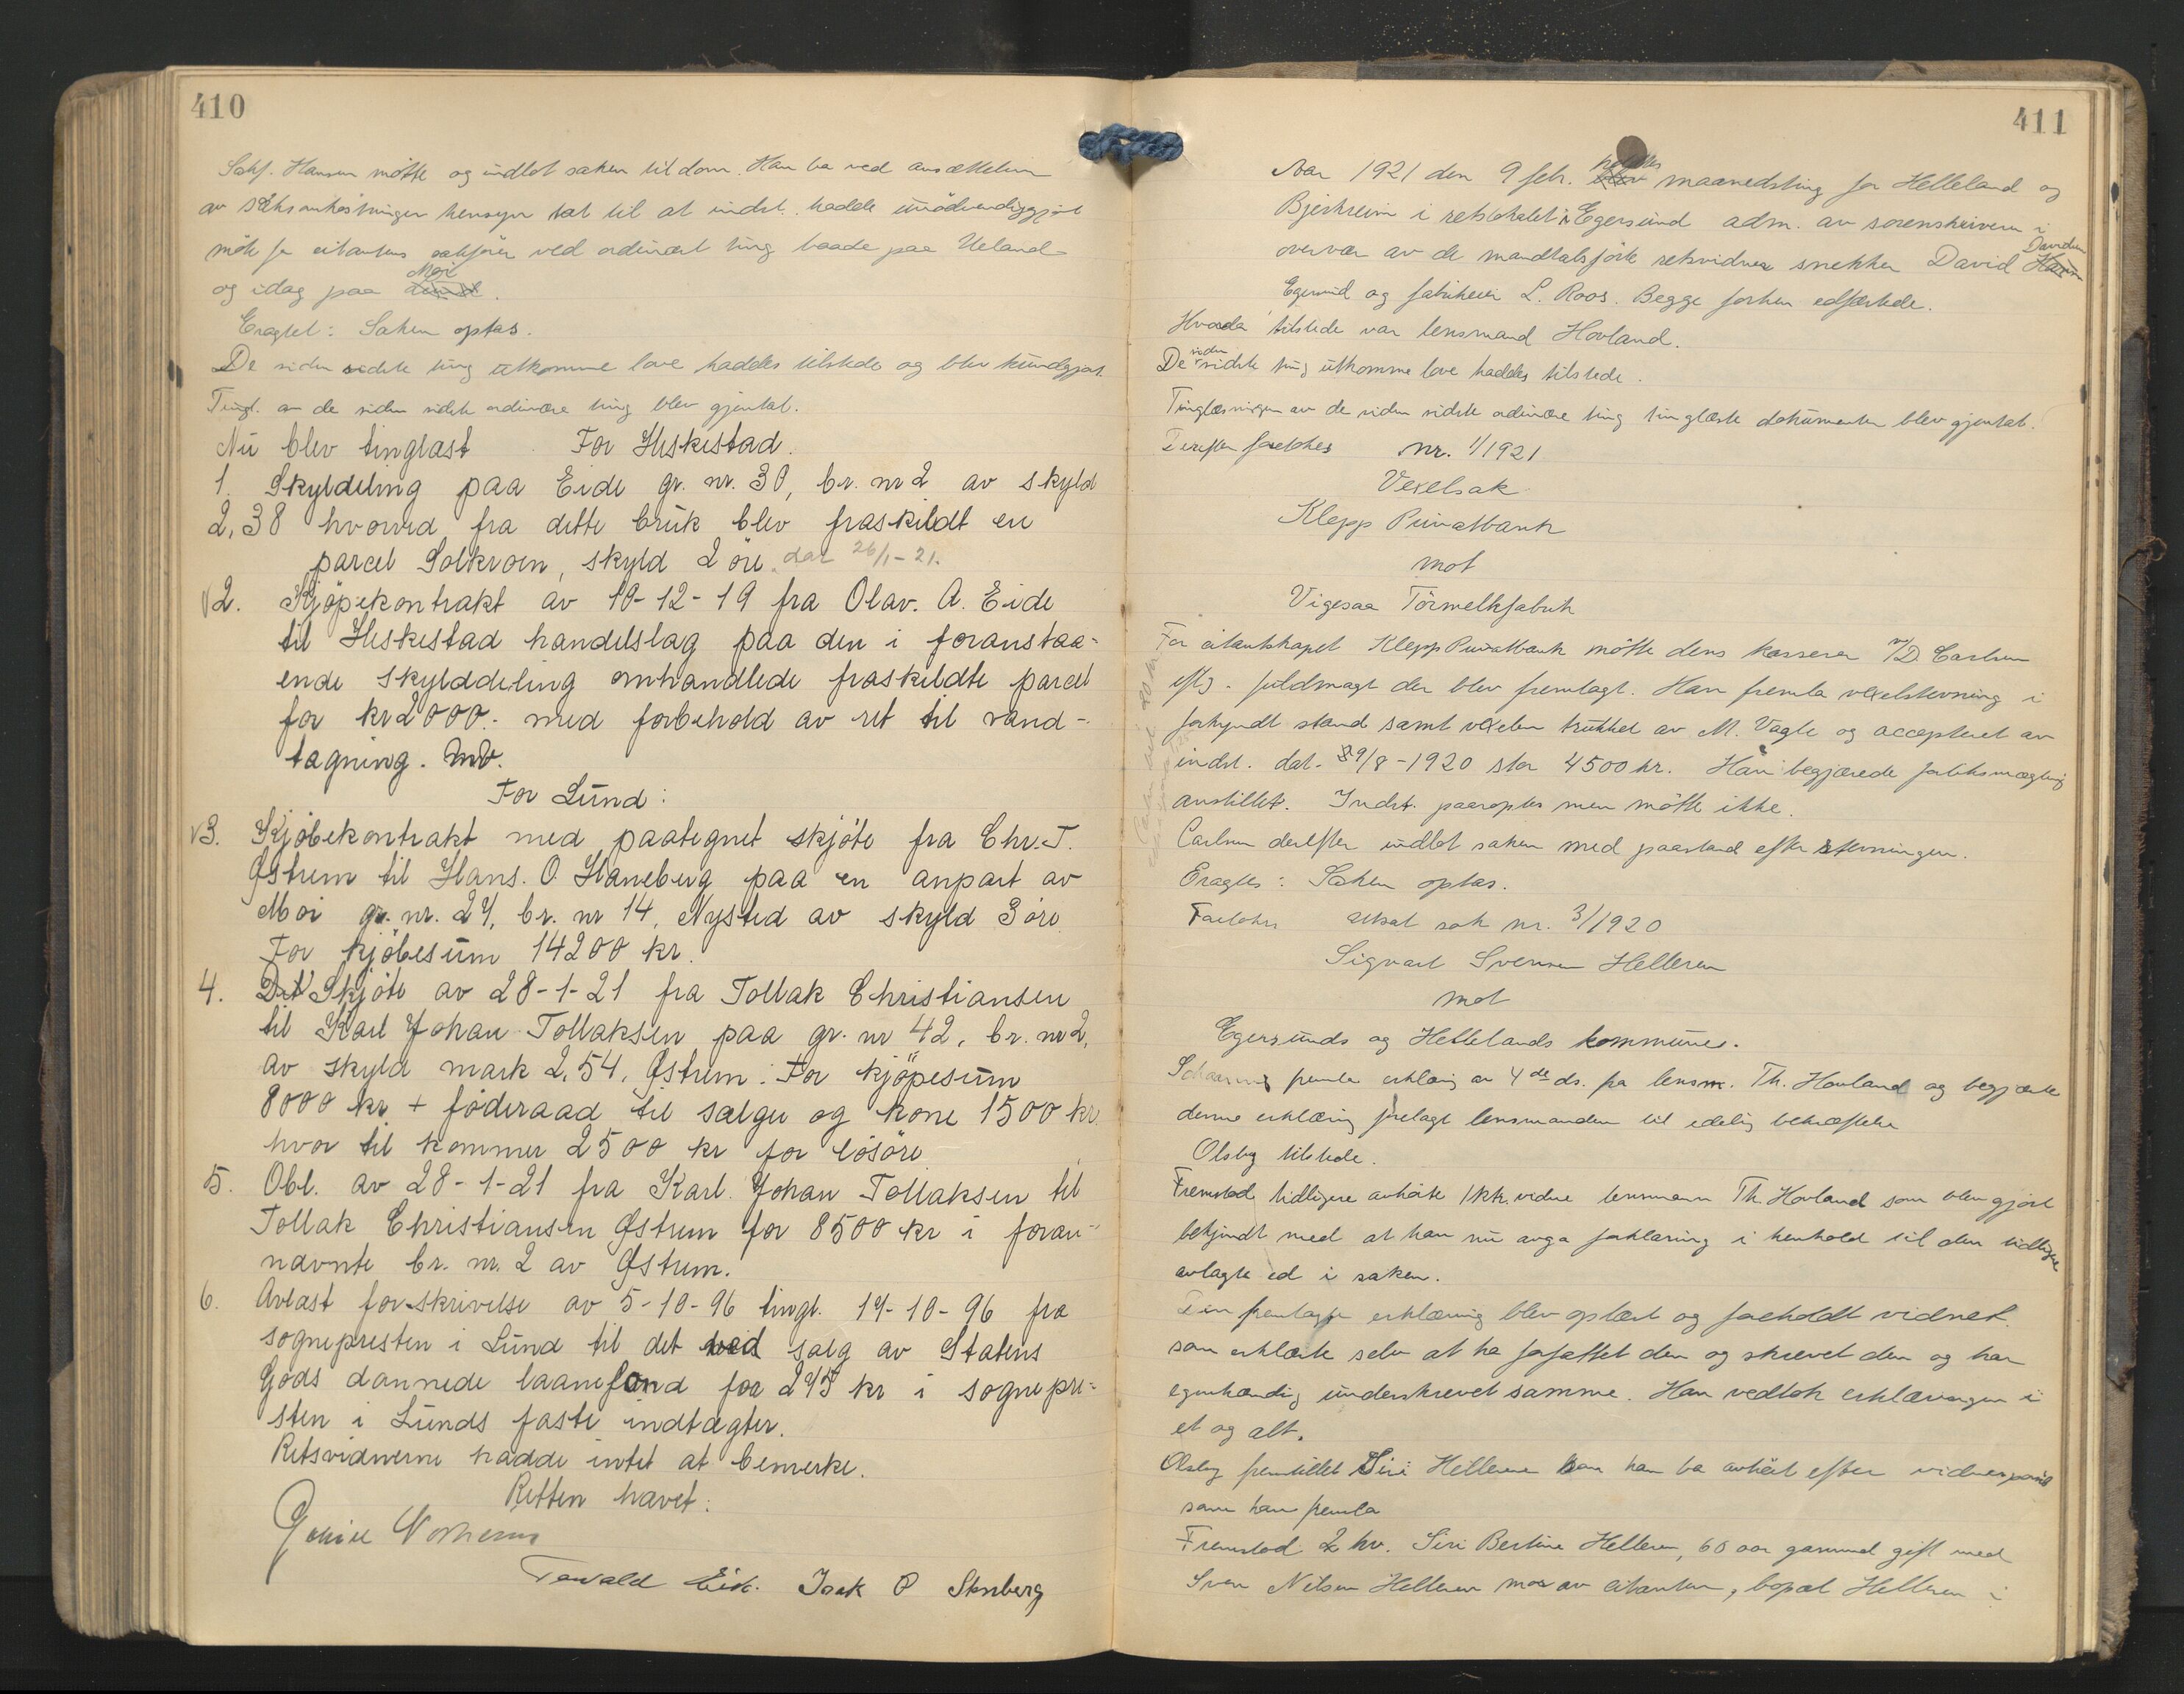 410
Sakf. Hansen møtte og indlot saken til dom. Han ba ved ansættelsen
av saksomkostninger hensyn tat til at indst. hadde unødvendiggjort
møte for citantens sakfører ved ordinært ting baade paa Ueland
og idag paa Moi
Eragtet: Saken optas.
De siden sidste ting utkomne love haddes tilstede og blev kundgjort.
Tingl. av de siden sidste ordinære ting blev gjentat.
Nu blev tinglæst For Heskestad.
1. Skylddeling paa Eide gr. nr. 30, br. nr 2 av skyld
2,38 hvorved fra dette bruk blev fraskildt en
parcel Solkroen, skyld 2 øre. dat 26/1-21.
V2. Kjöpekontrakt av 10-12-19 fra Olav. A. Eide
til Heskestad handelslag paa den i foranstaa-
ende skylddeling omhandlede fraskildte parcel
for kr 2000.- med forbehold av ret til vand-
tagning. mv.
For Lund:
V3. Kjöbekontrakt med paategnet skjöte fra Chr. T.
Østrem til Hans. O. Haneberg paa en anpart av
Moi gr. nr. 24, br. nr 14, Nysted av skyld 3 öre.
For kjöbesum 14200 kr.
4. Skjöte av 28-1-21 fra Tollak Christiansen
til Karl Johan Tollaksen paa gr. nr 42, br. nr 2,
av skyld mark 2,54, Østrem. For kjöpesum
8000 kr + föderaad til sælger og kone 1500 kr.
hvor til kommer 2500 kr for lösöre.
5. Obl. av 28-1-21 fra Karl Johan Tollaksen til
Tollak Christiansen Østrem for 8500 kr i foran-
nævnte br. nr. 2 av Østrem.
6. Avlæst forskrivelse av 5-10-96 tingl. 14-10-96 fra
sognepresten i Lund til det ved salg av Statens
Gods dannede laanefond for 245 kr i sognepre-
sten i Lunds faste indtægter.
Retsvidnerne hadde intet at bemerke.
Retten hævet:
Tarald Eik. Isak O Stenberg
411
Aar 1921 den 9 feb. holdtes maanedsting for Helleland og
Bjerkreim i retslokalet i Egersund adm. av sorenskriveren i
overvær av de mandtalsførte retsvidner snekker David Davidsen
Egersund og fabrikeier L. Roos. Begge forhen edfæstede.
Hvorda tilstede var lensmand Hovland.
De siden sidste ting utkomne love haddes tilstede.
Tinglæsningen av de siden sidste ordinære ting tinglæste dokumenter blev gjentat.
Derefter foretokes nr. 1/1921
Vexelsak
Klepp Privatbank
mot
Vigesaa Törmelkfabrik
For citantskapet Klepp Privatbank møtte dens kasserer D. Carlsen
eftg. fuldmagt der blev fremlagt. Han fremla vexelstevning i
forkyndt stand samt vexelen trukket av M. Vagle og accepteret av
indst. dat. 9/8-1920 stor 4500 kr. Han begjærede forliksmægling
anstillet. Indst. paaroptes men møtte ikke.
Carlsen derefter indlot saken med paastand efter stevningen.
Eragtes: Saken optas.
Foretokes utsat sak nr. 3/1920
Sigvart Svensen Helleren
mot
Egersunds og Hellelands kommuner.
fremla erklæring av 4de ds. fra lensm. Th. Hovland og begjærte
denne erklæring forelagt lensmanden til edelig bekræftelse
Olsby tilstede.
Fremstod tidligere avhörte vidne lensmann Th. Hovland som blev gjort
bekjendt med at han nu avga forklaring i henhold til den tidligere
avlagte ed i saken.
Den fremlagte erklæring blev oplæst og foreholdt vidnet.
som erklærte selv at ha forfattet den og skrevet den og har
egenhændig underskrevet samme. Han vedtok erklæringen i
et og alt.
Olsby fremstillet Siri Helleren som han ba avhört efter
som han fremla
Fremstod 2 hv. Siri Bertine Helleren, 60 aar gammel gift med
Sven Nilsen Helleren mor av citanten, bopæl Helleren i